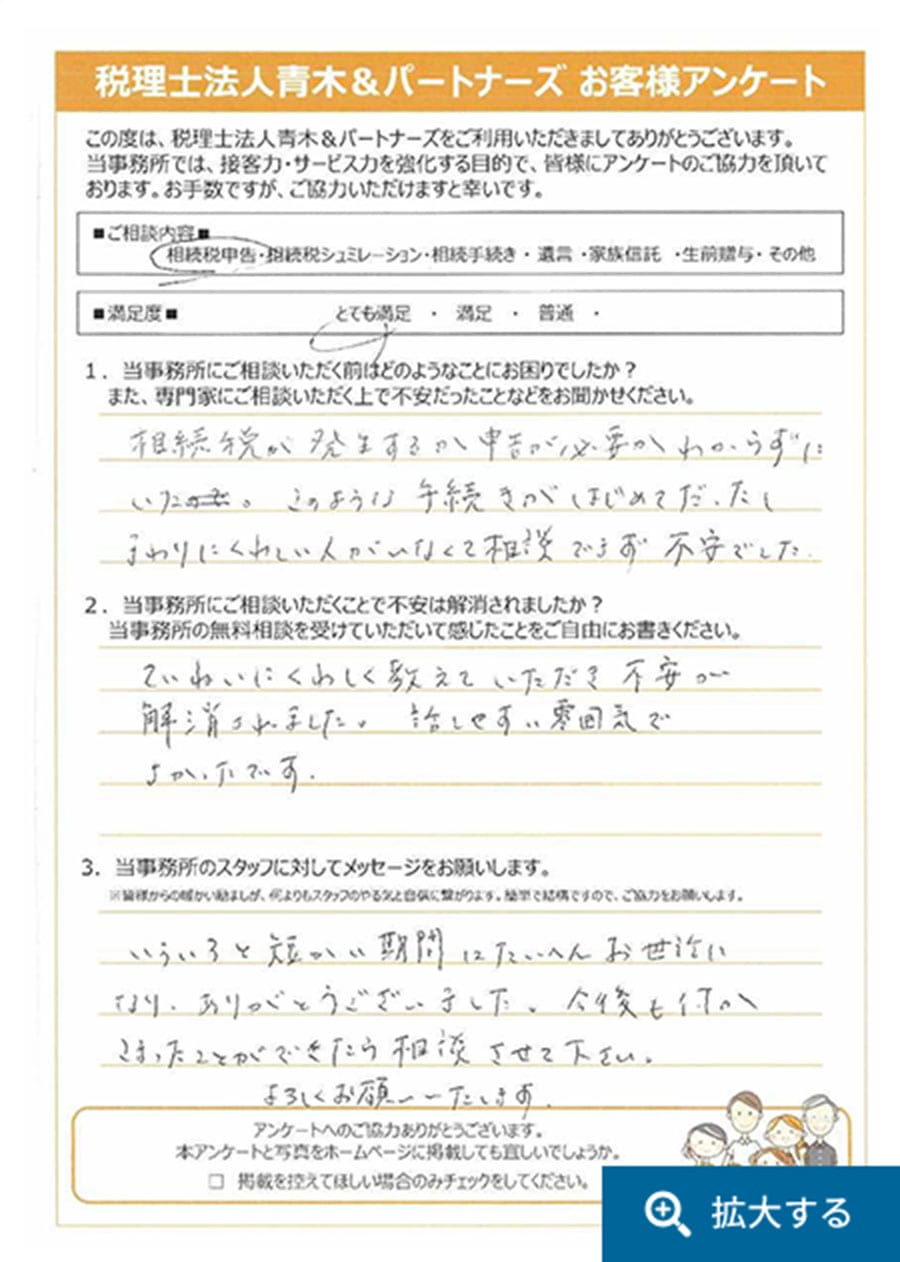 税理士法人青木＆パートナーズ お客様アンケート
この度は、税理士法人青木＆パートナーズをご利用いただきましてありがとうございます。
当事務所では、接客力・サービス力を強化する目的で、皆様にアンケートのご協力を頂いて
おります。お手数ですが、ご協力いただけますと幸いです。
■ご相談内容■
相続税申告・相続税シュミレーション・相続手続き・ 遺言 ・家族信託 ・生前贈与・その他
■満足度■ とても満足 ・ 満足 ・ 普通 ・
1．当事務所にご相談いただく前はどのようなことにお困りでしたか？
また、専門家にご相談いただく上で不安だったことなどをお聞かせください。
相続税が発生するか申告が必要かわからずに
いた。このような手続きがはじめてだったし
まわりにくわしい人がいなくて相談できず不安でした.
2．当事務所にご相談いただくことで不安は解消されましたか？
当事務所の無料相談を受けていただいて感じたことをご自由にお書きください。
ていねいにくわしく教えていただき不安が
解消されました。話しやすい雰囲気で
よかったです.
3．当事務所のスタッフに対してメッセージをお願いします。
※皆様からの暖かい励ましが、何よりもスタッフのやる気と自信に繋がります。簡単で結構ですので、ご協力をお願いします。
いろいろと短かい期間にたいへんお世話に
なり、ありがとうございました。今後も何か
こまったことがでてきたら相談させて下さい。
よろしくお願いいたします.
アンケートへのご協力ありがとうございます。
本アンケートと写真をホームページに掲載しても宜しいでしょうか。
□ 掲載を控えてほしい場合のみチェックをしてください。
拡大する